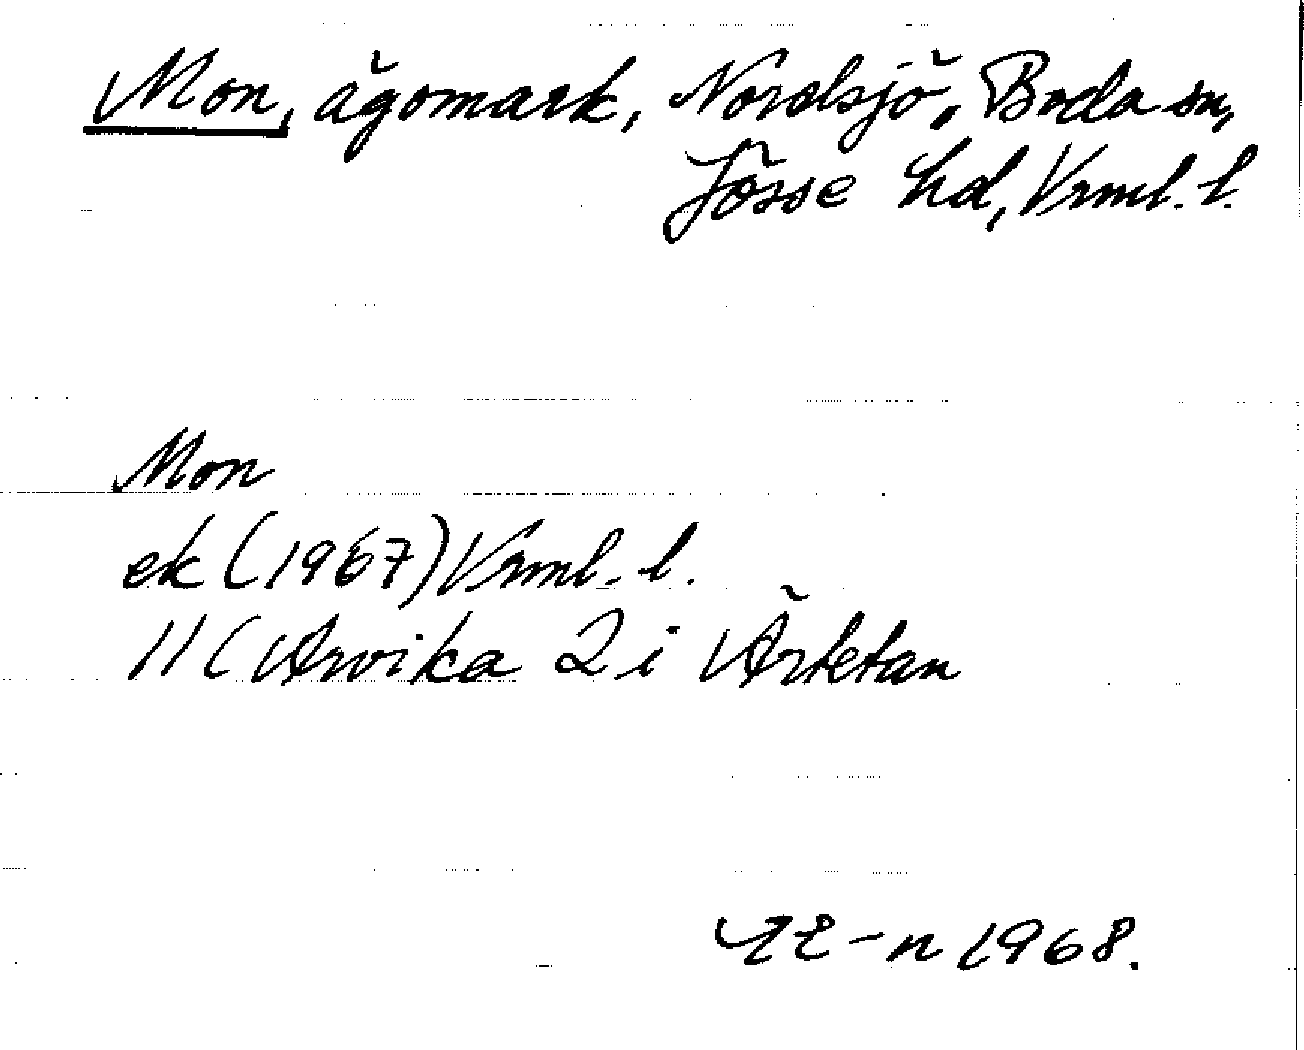 Mon, ägomark, Nordsjö, Boda sn,
Jösse hd, Vrml. l.
Mon
ek (1967) Vrml. l.
11C Arvika 2 i Ärtetan
-n 1968.